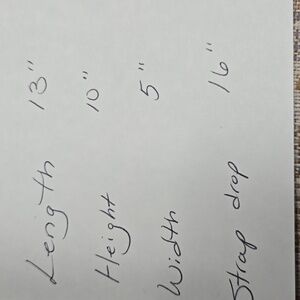 Length 13"
Height 10"
Width 5"
Strap drop 16"